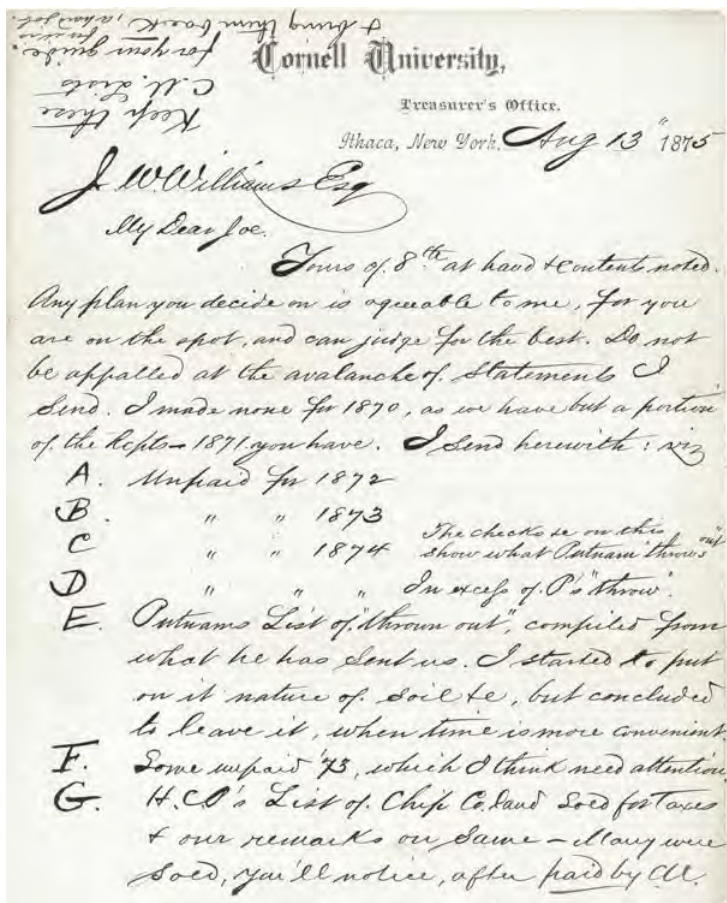 Cornell University,
Treasurer's Office.
Ithaca, New York. Aug 13" 1875
Keep these
C.U. Lists
for your guide
& bring them back, a hard job.
J. W. Williams Esq
My Dear Joe.
Yours of 8th at hand & contents noted.
Any plan you decide on is agreeable to me, for you
are on the spot, and can judge for the best. Do not
be appalled at the avalanche of Statements I
send. I made none for 1870, as we have but a portion
of the Rcpts – 1871 you have. I send herewith: viz
A. Unpaid for 1872
B. " " 1873
C " " 1874 The checks on this
show what Putnam "throws out"
D " " " In excess of P's "throw".
E. Putnams List of "thrown out", compiled from
what he has sent us. I started to put
on it nature of soil &c, but concluded
to leave it, when time is more convenient.
F. Some unpaid '73, which I think need attention.
G. H.C.P's List of Chip Co. land Sold for Taxes
& our remarks on same – Many were
sold, you'll notice, after paid by